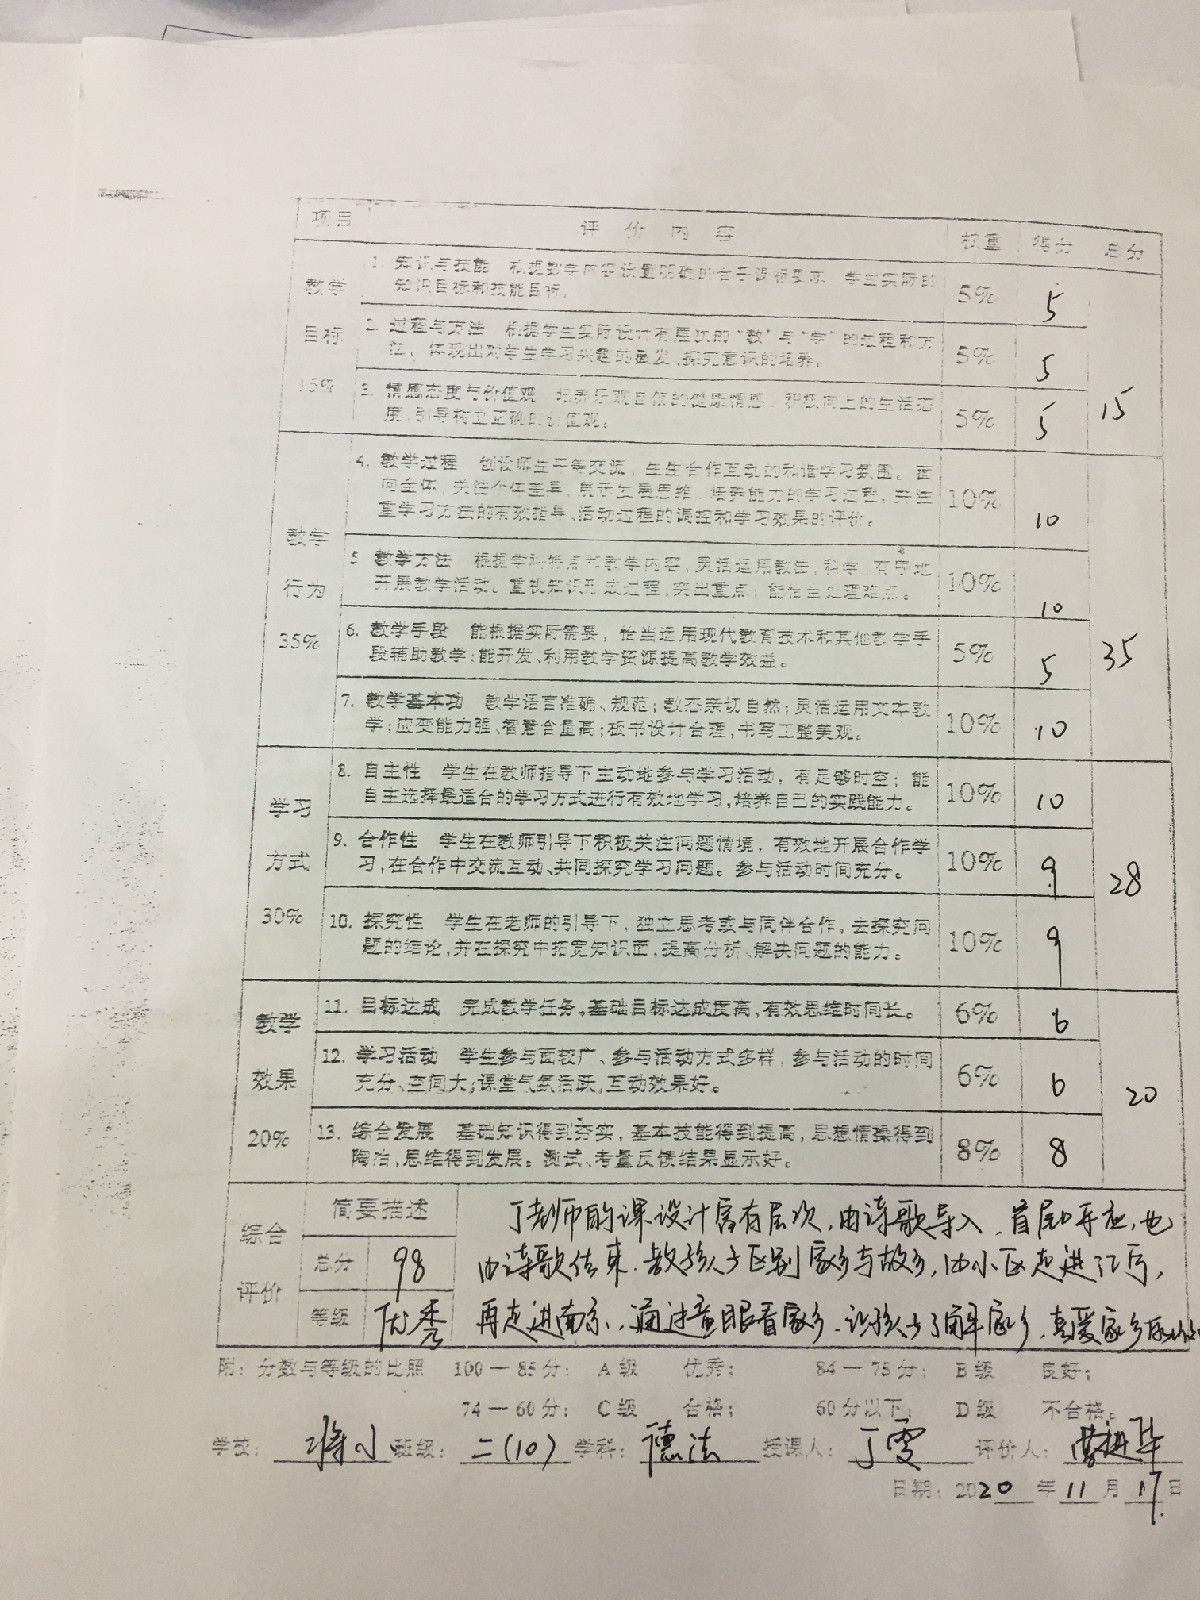 项目 评价内容 权重 得分 总分
教学
目标
15%
1. 知识与技能 根据教学内容设置明确的合乎课标要求、学生实际的
知识目标和技能目标。 5% 5
2. 过程与方法 根据学生实际设计有层次的“教”与“学”的过程和方
法，体现出对学生学习兴趣的激发、探究意识的培养。 5% 5
3. 情感态度与价值观 培养乐观自信的健康情感、积极向上的生活态
度，引导树立正确的价值观。 5% 5
15
教学
行为
35%
4. 教学过程 创设师生平等交流，生生合作互动的和谐学习氛围。面
向全体，关注个体差异，展示发展思维、培养能力的学习过程，并注
重学习方法的有效指导、活动过程的调控和学习效果的评价。 10% 10
5. 教学方法 根据学科特点和教学内容，灵活运用教法，科学、有序地
开展教学活动。重视知识形成过程，突出重点，能恰当处理难点。 10% 10
6. 教学手段 能根据实际需要，恰当运用现代教育技术和其他教学手
段辅助教学；能开发、利用教学资源提高教学效益。 5% 5
7. 教学基本功 教学语言准确、规范；教态亲切自然；灵活运用文本教
学；应变能力强、智慧含量高；板书设计合理，书写工整美观。 10% 10
35
学习
方式
30%
8. 自主性 学生在教师指导下主动地参与学习活动，有足够时空；能
自主选择最适合的学习方式进行有效地学习，培养自己的实践能力。 10% 10
9. 合作性 学生在教师引导下积极关注问题情境，有效地开展合作学
习，在合作中交流互动、共同探究学习问题。参与活动时间充分。 10% 9
10. 探究性 学生在老师的引导下，独立思考或与同伴合作，去探究问
题的结论，并在探究中拓宽知识面，提高分析、解决问题的能力。 10% 9
28
教学
效果
20%
11. 目标达成 完成教学任务，基础目标达成度高，有效思维时间长。 6% 6
12. 学习活动 学生参与面较广、参与活动方式多样，参与活动的时间
充分、空间大；课堂气氛活跃，互动效果好。 6% 6
13. 综合发展 基础知识得到夯实，基本技能得到提高，思想情操得到
陶冶，思维得到发展。测试、考量反馈结果显示好。 8% 8
20
综合
评价
简要描述
总分 98
等级 优秀
丁老师的课设计富有层次，由诗歌导入，首尾呼应，也
由诗歌结束。教孩子区别家乡与故乡，由小区走进江宁，
再走进南京，通过童眼看家乡，让孩子了解家乡，喜爱家乡
附：分数与等级的比照 100—85分： A级 优秀； 84—75分： B级 良好；
74—60分： C级 合格； 60分以下： D级 不合格。
学校： 小 班级： 二(10) 学科： 德法 授课人： 丁雯 评价人：
日期：2020年11月17日